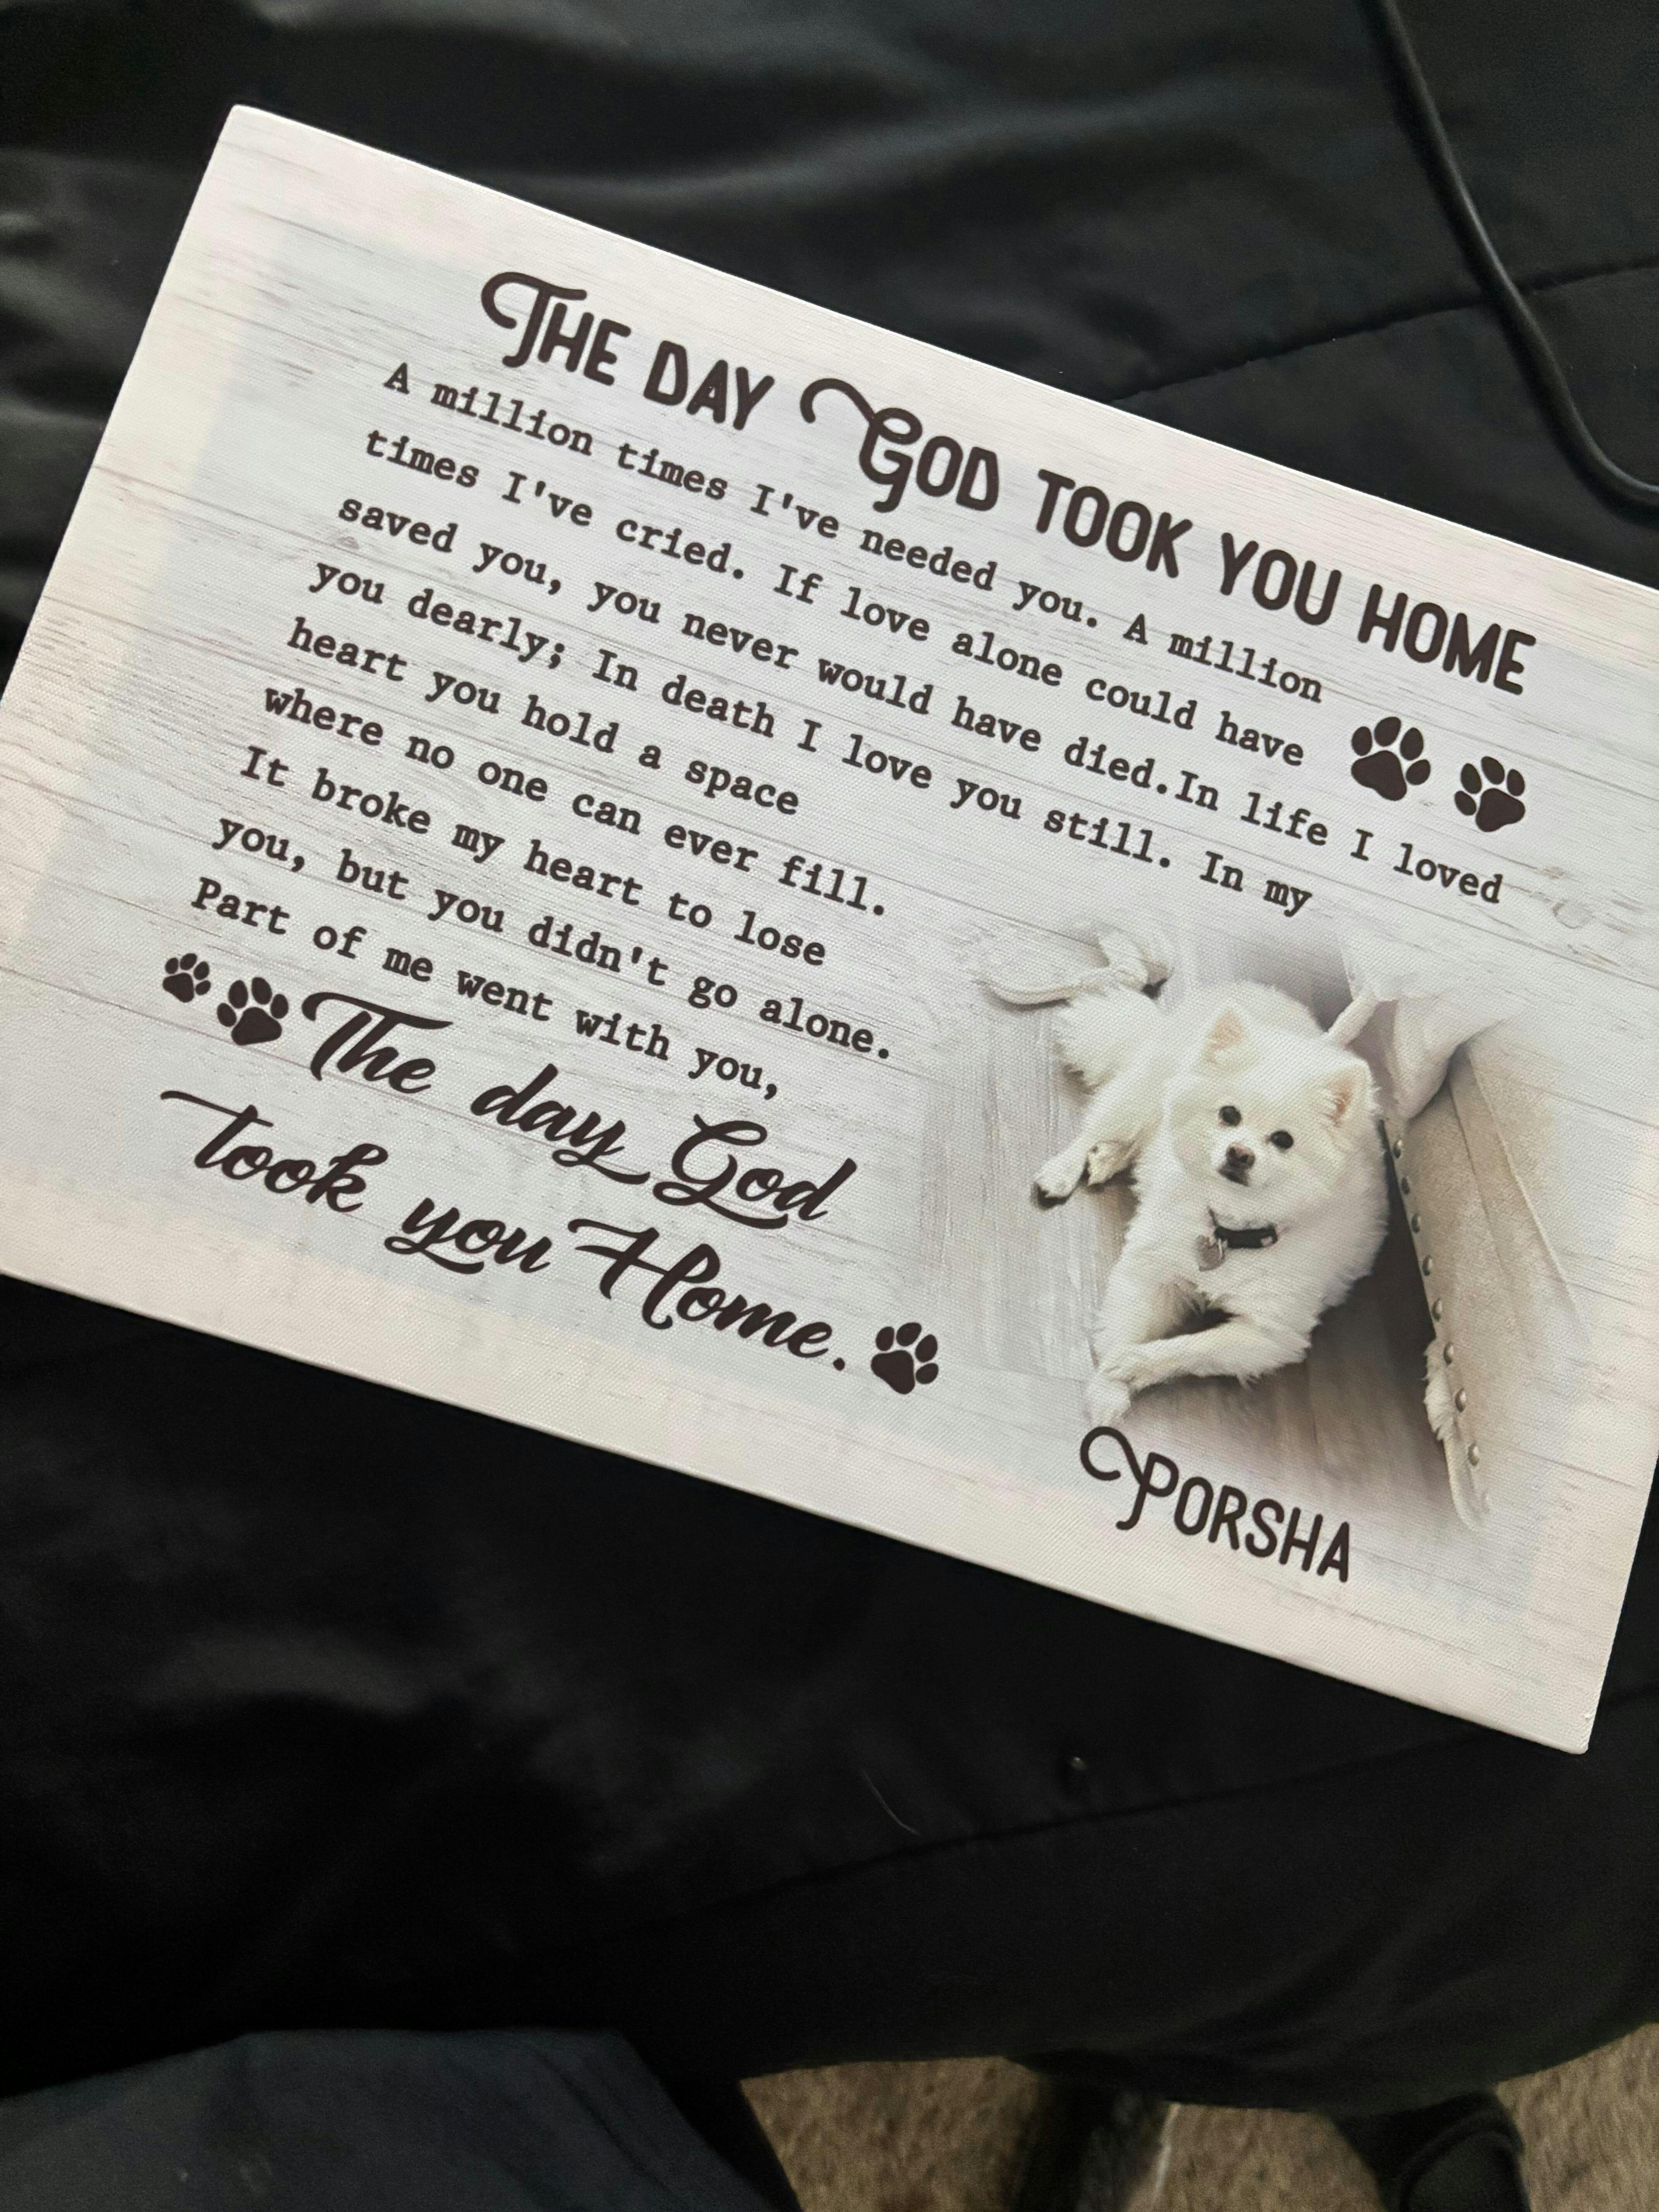 THE DAY GOD TOOK YOU HOME
A million times I've needed you. A million
times I've cried. If love alone could have
saved you, you never would have died.In life I loved
you dearly; In death I love you still. In my
heart you hold a space
where no one can ever fill.
It broke my heart to lose
you, but you didn't go alone.
Part of me went with you,
The day God
took you Home.
PORSHA